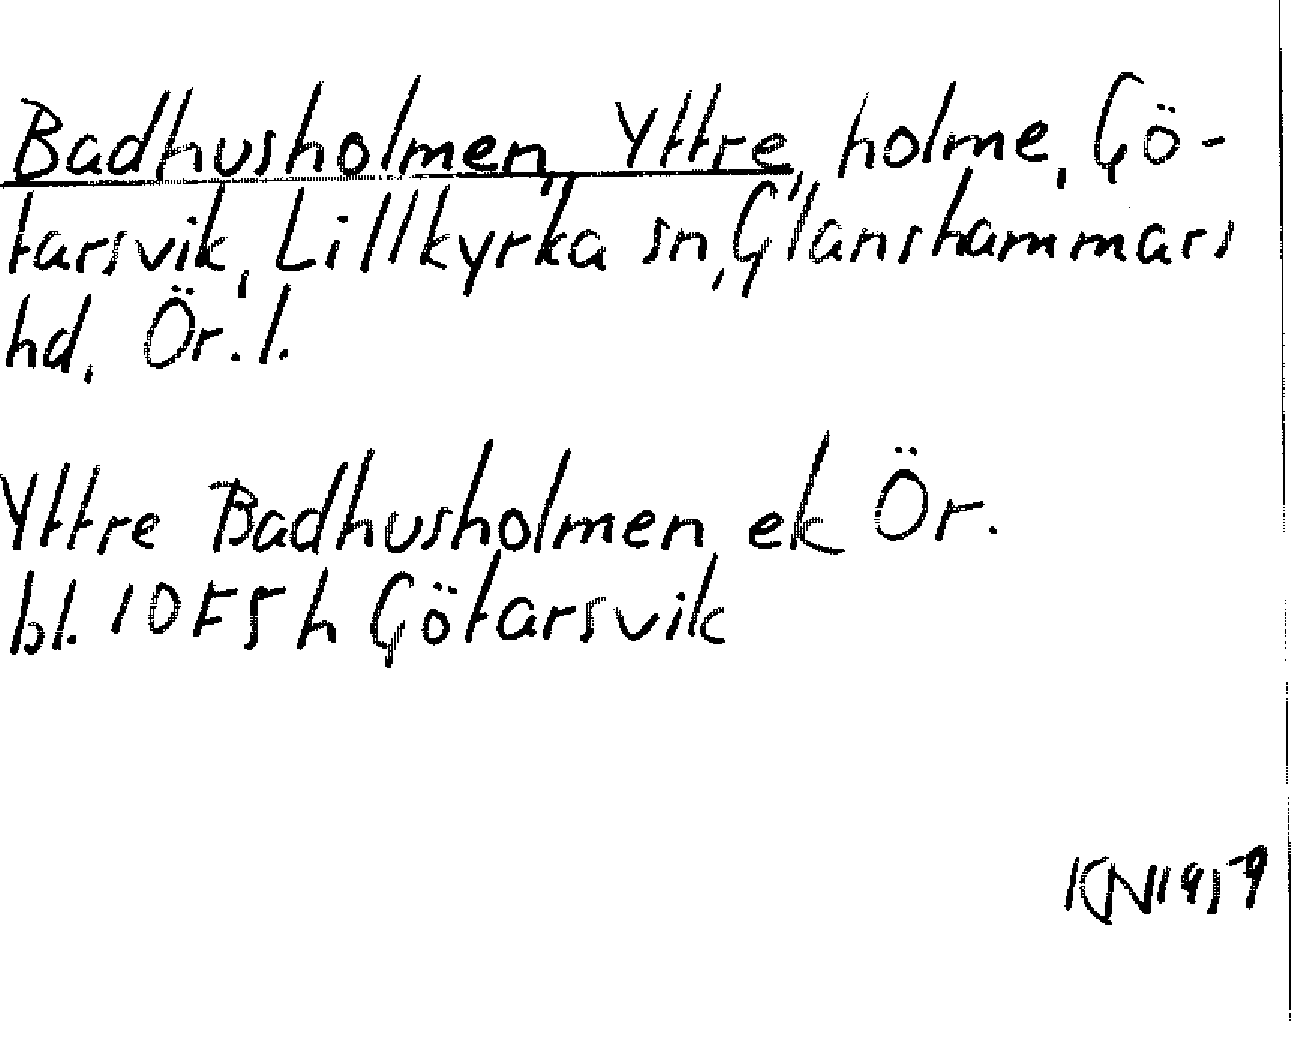 Badhusholmen, Yttre, holme, Gö-
tarsvik, Lillkyrka sn, Glanshammars
hd, Ör. l.
Yttre Badhusholmen ek Ör.
bl. 10F5h Götarsvik
KN 1959